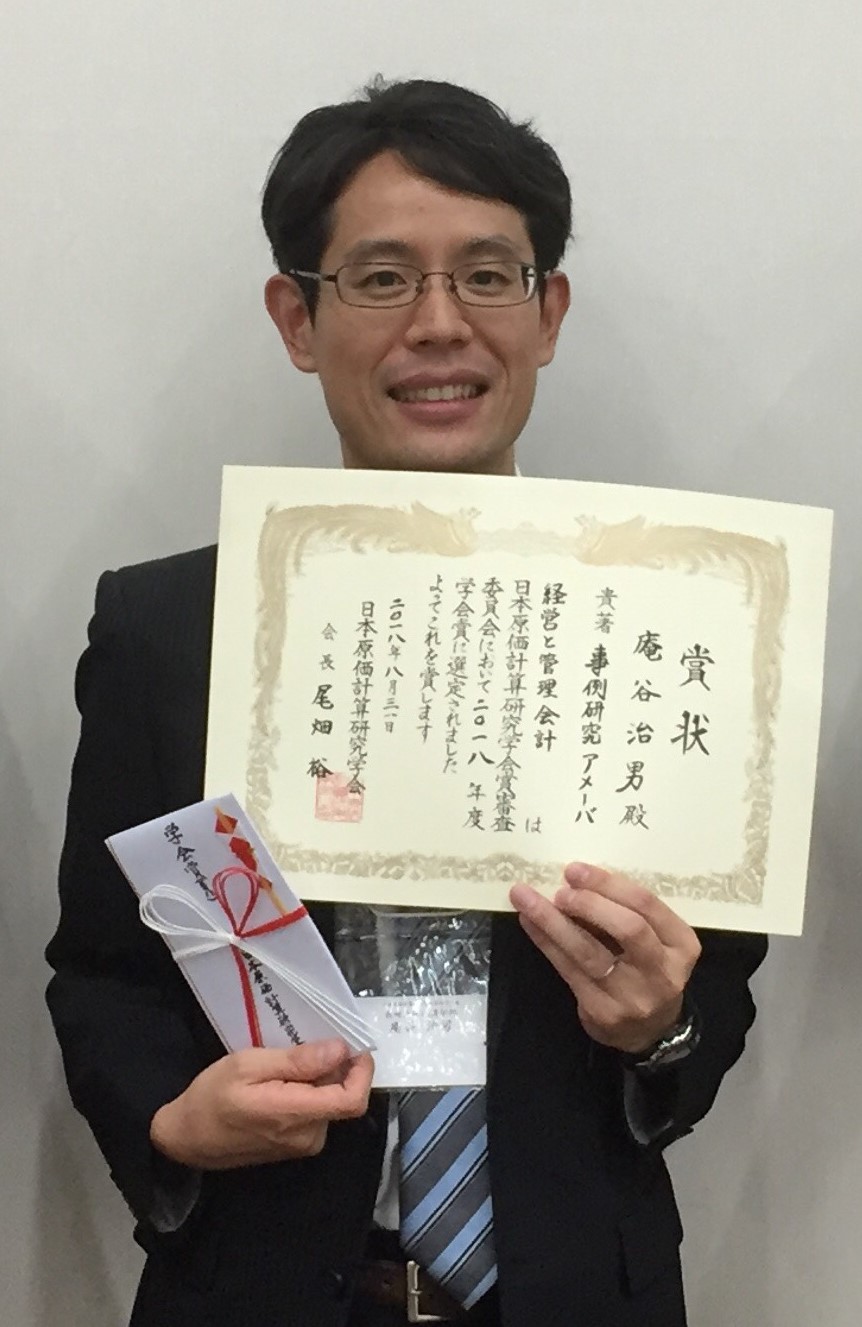 賞状
庵谷治男殿
貴著 事例研究 アメーバ
経営と管理会計 は
日本原価計算研究学会賞審査
委員会において二〇一八年度
学会賞に選定されました
よってこれを賞します
二〇一八年八月三一日
日本原価計算研究学会
会長 尾畑 裕
学会賞
日本原価計算研究学